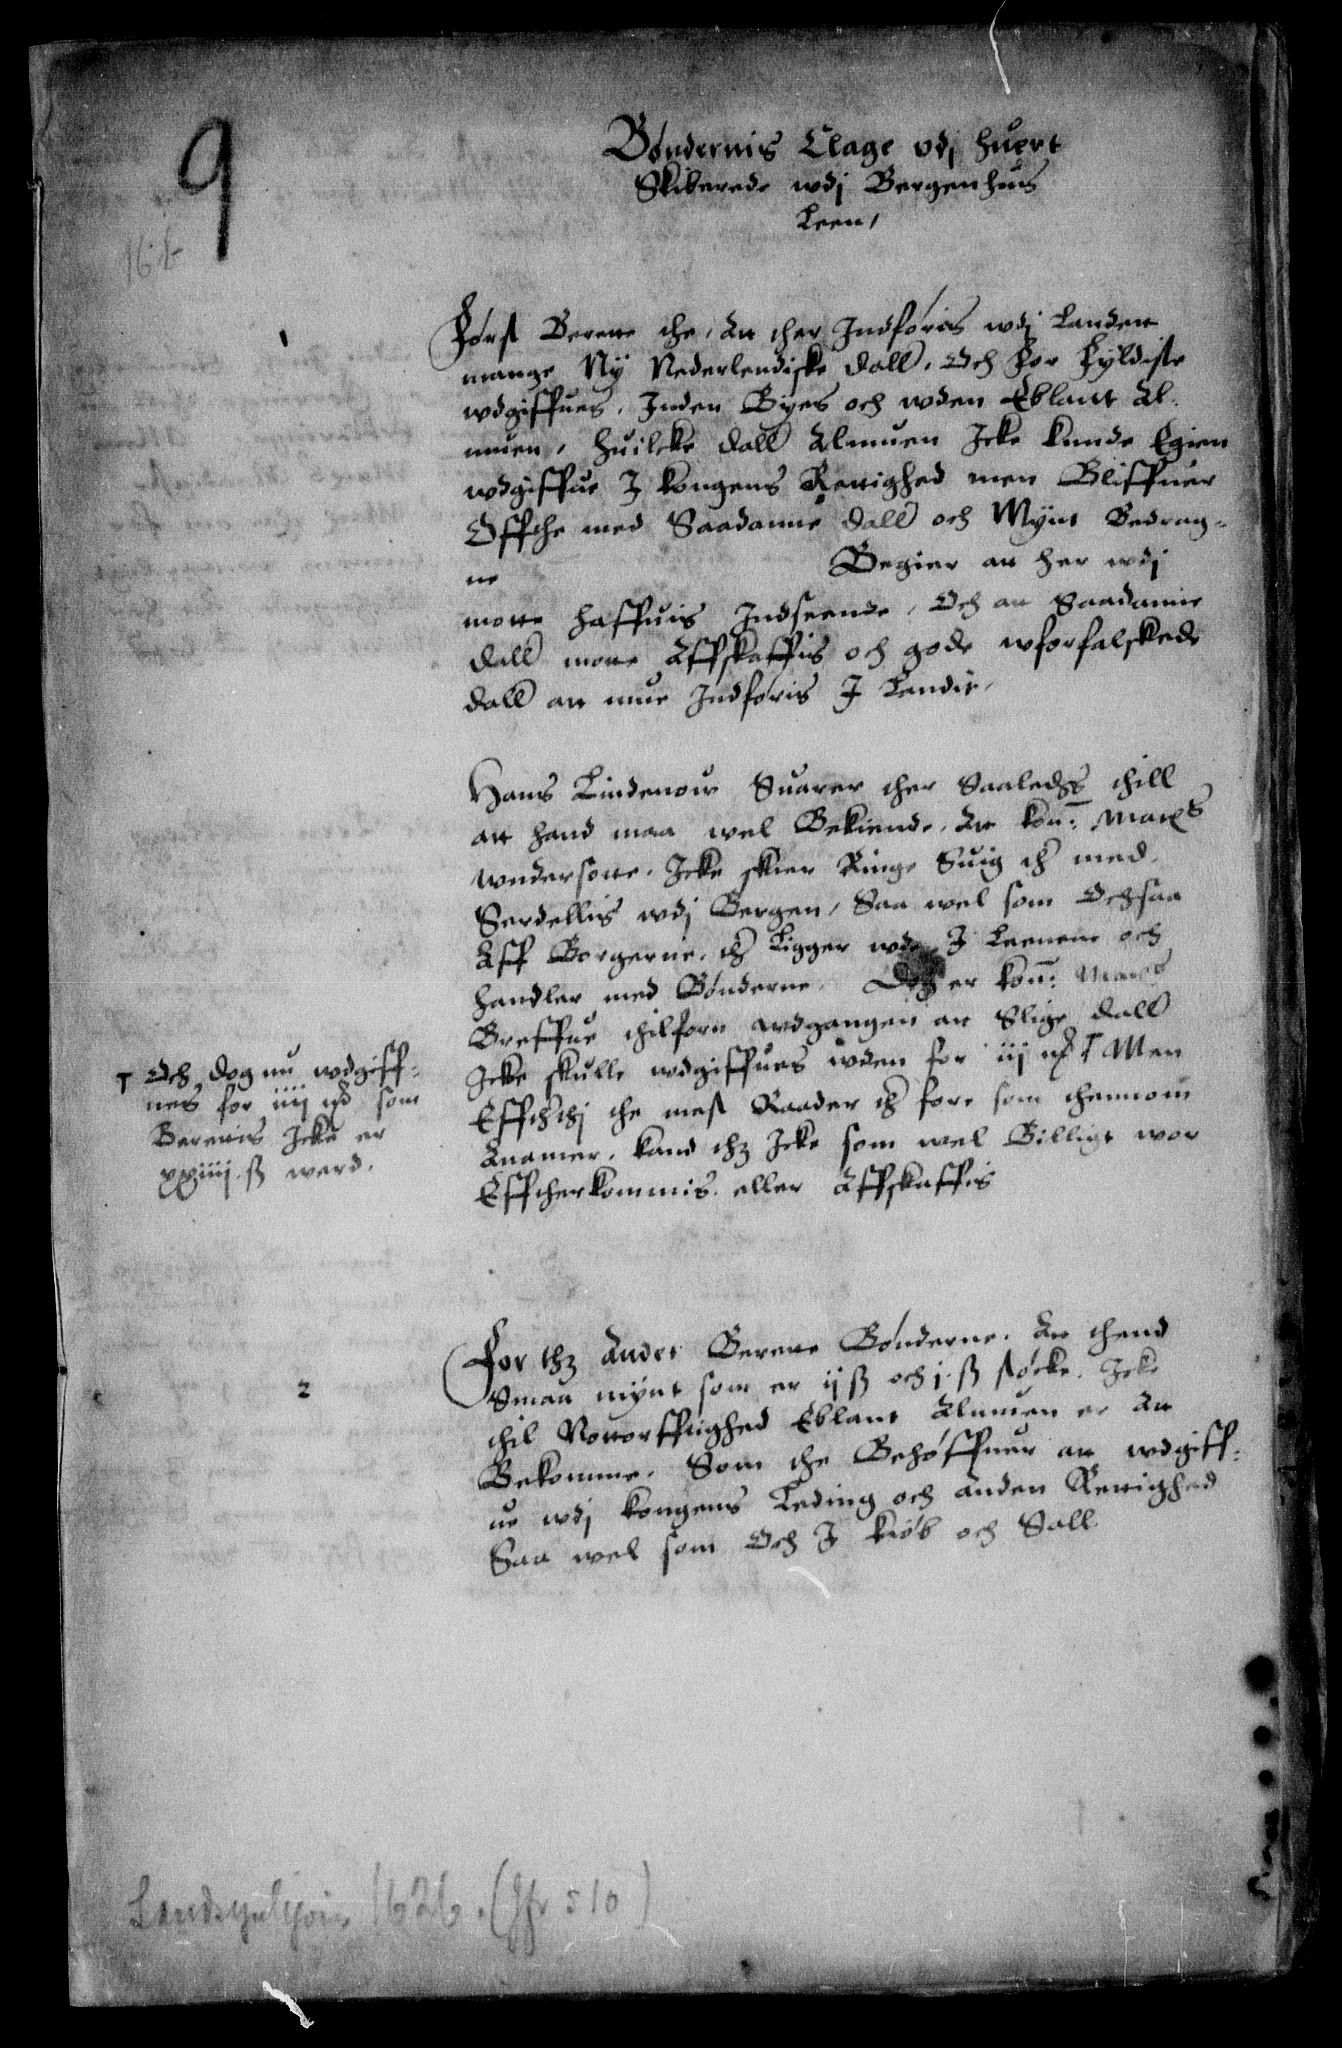 9
Bøndernis Clage vdj huert
Skiberede wdj Bergenhus
Leen,
1
Først Berette the, At ther Indføris wdj Landett
mange Ny Nederlendiske dall. Och for fyldiste
wdgiffues, Inden Byes och wden Eblant Al-
muen, huilcke dall Almuen Icke kunde Egien
wdgiffue J kongens Rettighed men Bliffuer
Offthe med Saadanne dall och Mynt Bedrag-
ne
Begier att her wdj
motte haffuis Indseende, Och att Saadanne
dall motte Affskaffis och gode wforfalskede
dall att mue Indføris J Landit,
Hans Lindenow Suarer ther Saaledis thill
att hand maa wel Bekiende, At kon: Matts
wndersotte, Icke skier Ringe Suig th med
Sardellis wdj Bergen, Saa wel som Ochsaa
Aff Borgerne, th Ligger wde J Leenene och
handler med Bønderne. Dog er kon: Matts
Breffue thilforn wdgangen att Slige dall
Icke skulle wdgiffues wden for iij mk T Men
Effththj the mest Raader th fore som thennom
Anamer, kand thz Icke som wel Billigt wor
Efftherkommis, eller Affskaffis
T Och dog nu wdgiff-
ues for iiij mk som
Berettis Icke er
xxiiij ß werd.
2
For thz Andet Berette Bønderne, At thend
Smaa mynt som er ij ß och j ß støcke, Icke
thil Nottorfftighed Eblant Almuen er At
Bekomme, Som the Behøffuer att wdgiff-
ue wdj kongens Leding och anden Rettighed
Saa wel som Och J kiøb och Sall
1626. (Jfr 510)